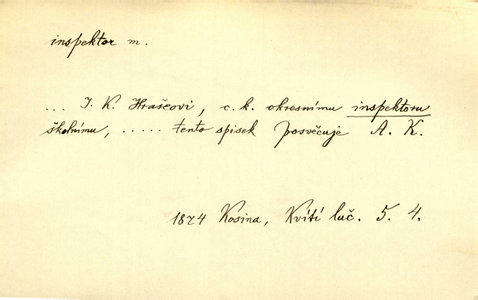 inspektor m.
... J. K. Hrašeovi, c. k. okresnímu inspektoru
školnímu, ..... tento spisek posvěcuje A. K.
1874 Kosina, Kvítí luč. 5. 4.